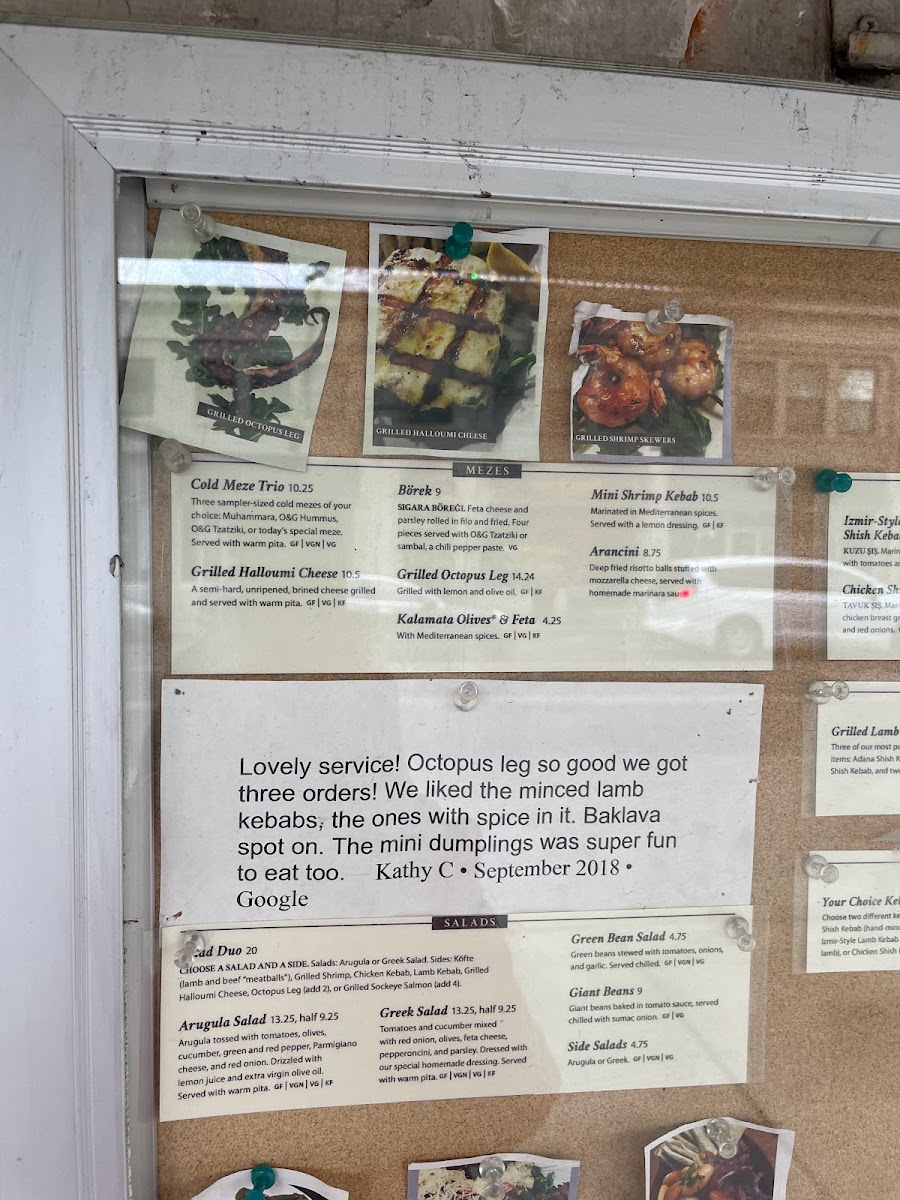 GRILLED OCTOPUS LEG
GRILLED HALLOUMI CHEESE
GRILLED SHRIMP SKEWERS
MEZES
Cold Meze Trio 10.25
Three sampler-sized cold mezes of your
choice: Muhammara, O&G Hummus,
O&G Tzatziki, or today's special meze.
Served with warm pita. GF | VGN | VG
Grilled Halloumi Cheese 10.5
A semi-hard, unripened, brined cheese grilled
and served with warm pita. GF | VG | KF
Börek 9
SIGARA BÖREĞİ. Feta cheese and
parsley rolled in filo and fried. Four
pieces served with O&G Tzatziki or
sambal, a chili pepper paste. VG
Grilled Octopus Leg 14.24
Grilled with lemon and olive oil. GF | KF
Kalamata Olives* & Feta 4.25
With Mediterranean spices. GF | VG | KF
Mini Shrimp Kebab 10.5
Marinated in Mediterranean spices.
Served with a lemon dressing. GF | KF
Arancini 8.75
Deep fried risotto balls stuffed with
mozzarella cheese, served with
homemade marinara sauce
Lovely service! Octopus leg so good we got
three orders! We liked the minced lamb
kebabs, the ones with spice in it. Baklava
spot on. The mini dumplings was super fun
to eat too. Kathy C • September 2018 •
Google
SALADS
Duo 20
CHOOSE A SALAD AND A SIDE. Salads: Arugula or Greek Salad. Sides: Köfte
(lamb and beef "meatballs"), Grilled Shrimp, Chicken Kebab, Lamb Kebab, Grilled
Halloumi Cheese, Octopus Leg (add 2), or Grilled Sockeye Salmon (add 4).
Arugula Salad 13.25, half 9.25
Arugula tossed with tomatoes, olives,
cucumber, green and red pepper, Parmigiano
cheese, and red onion. Drizzled with
lemon juice and extra virgin olive oil.
Served with warm pita. GF | VGN | VG | KF
Greek Salad 13.25, half 9.25
Tomatoes and cucumber mixed
with red onion, olives, feta cheese,
pepperoncini, and parsley. Dressed with
our special homemade dressing. Served
with warm pita. GF | VGN | VG | KF
Green Bean Salad 4.75
Green beans stewed with tomatoes, onions,
and garlic. Served chilled. GF | VGN | VG
Giant Beans 9
Giant beans baked in tomato sauce, served
chilled with sumac onion. GF | VG
Side Salads 4.75
Arugula or Greek. GF | VGN | VG
Izmir-Style
Shish Keba
KUZU ŞIŞ. Marin
with tomatoes a
Chicken Sh
TAVUK ŞIŞ. Mari
chicken breast g
and red onions.
Grilled Lamb
Three of our most po
items: Adana Shish K
Shish Kebab, and tw
Your Choice Ke
Choose two different ke
Shish Kebab (hand-minc
Izmir-Style Lamb Kebab
lamb), or Chicken Shish